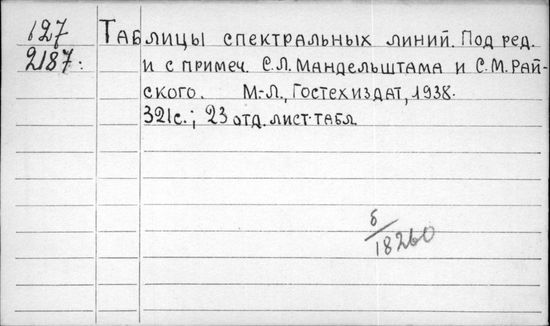 127
2187.
Таблицы спектральных линий. Под ред.
и с примеч. С.Л. Мандельштама и С.М. Рай-
ского. М.-Л., Гостехиздат, 1938.
321с.; 23 отд. лист. табл.
б/18260